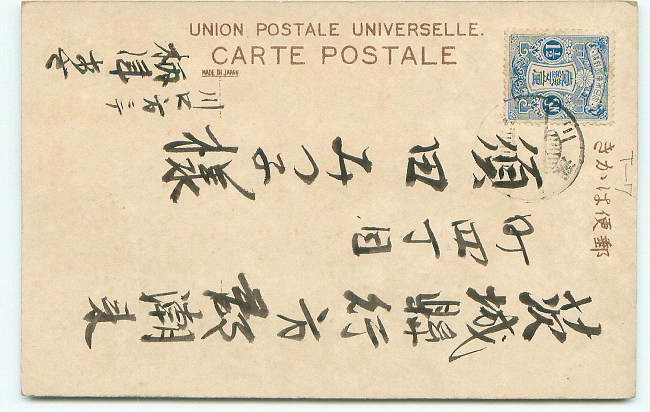 UNION POSTALE UNIVERSELLE.
CARTE POSTALE
MADE IN JAPAN
郵便はかき
T-17
茨城縣行方郡潮来
町四丁目
須田みつ子様
川口方ニテ